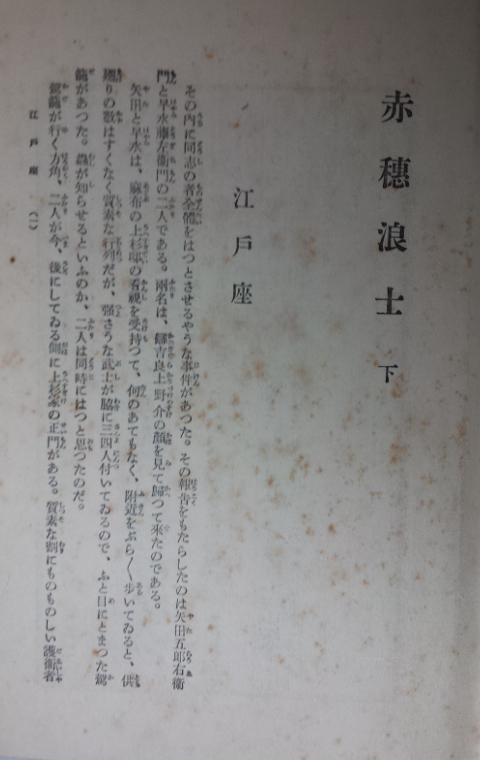 赤穗浪士 下
江戶座
その內に同志の者全體をはつとさせるやうな事件があつた。その報吿をもたらしたのは矢田五郎右衞
門と早水藤左衞門の二人である。兩名は、讎吉良上野介の顏を見て歸つて來たのである。
矢田と早水は、麻布の上杉邸の看視を受持つて、何のあてもなく、附近をぶら〱步いてゐると、供
廻りの數はすくなく質素な行列だが、强さうな武士が脇に三四人付いてゐるので、ふと目にとまつた駕
籠があつた。蟲が知らせるといふのか、二人は同時にはつと思つたのだ。
駕籠が行く方角、二人が今、後にしてゐる側に上杉家の正門がある。質素な割にものものしい護衞者
江戶座 (一)